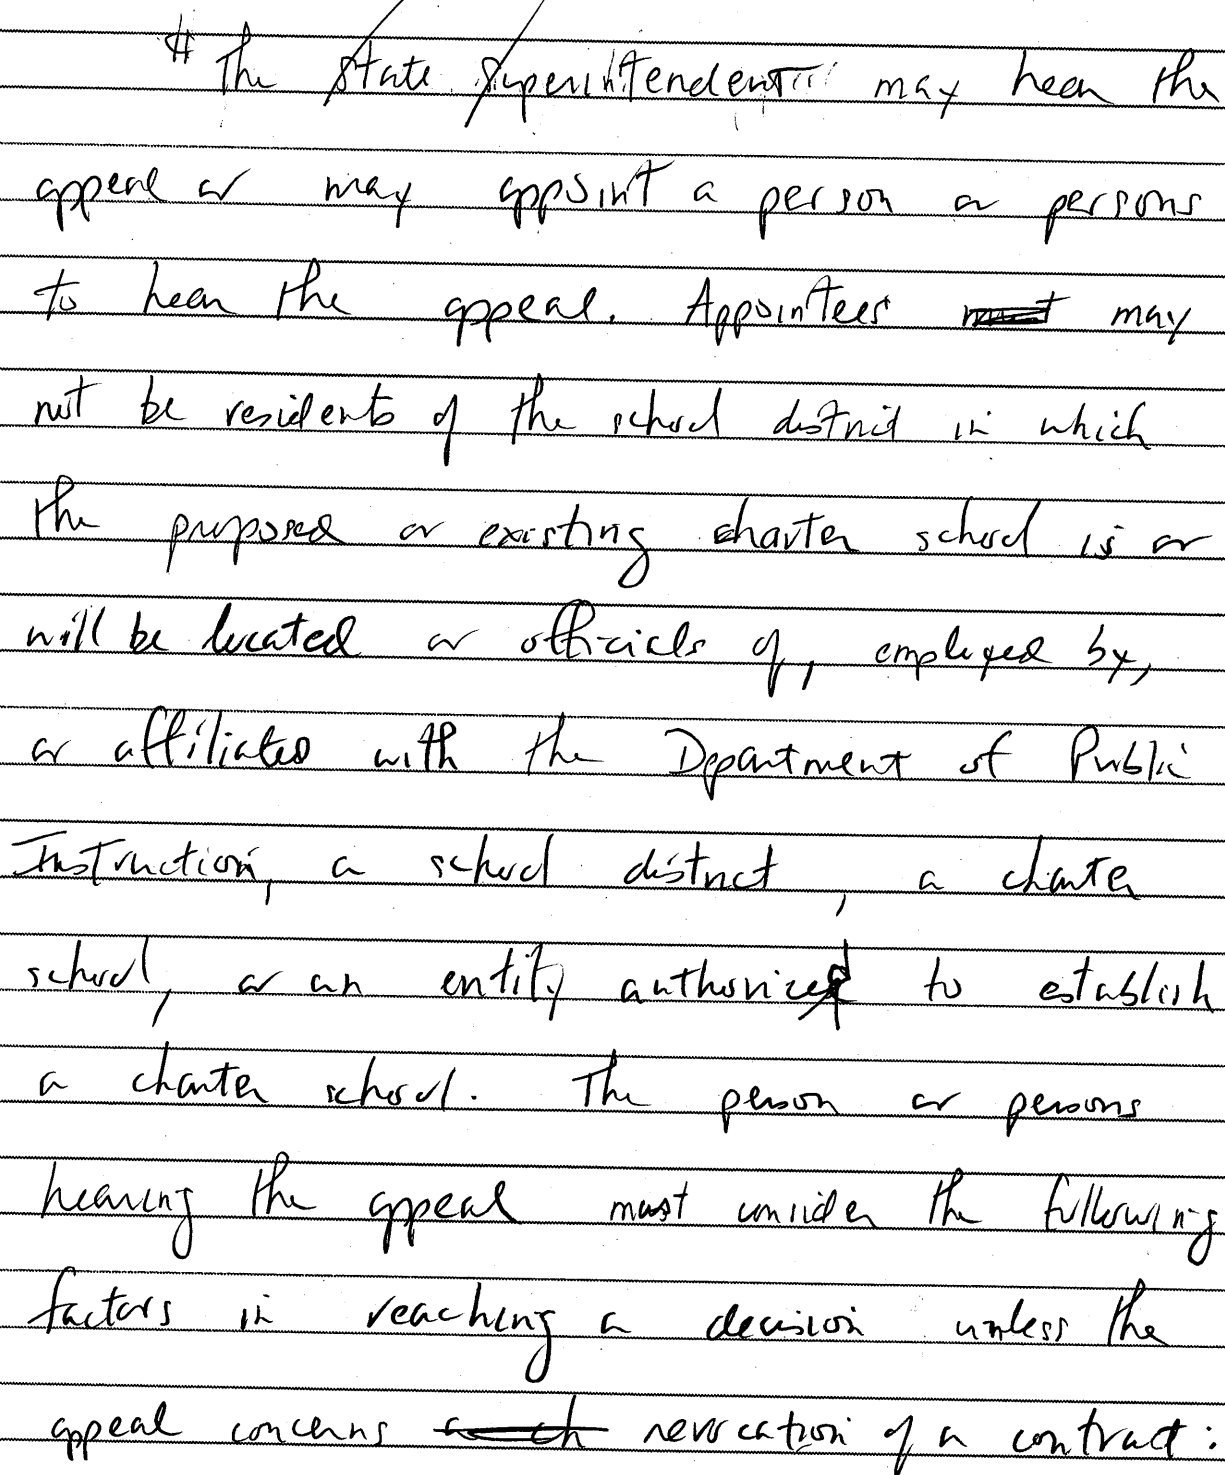 # The State Superintendent may hear the
appeal or may appoint a person or persons
to hear the appeal. Appointees must may
not be residents of the school district in which
the proposed or existing charter school is or
will be located or officials of, employed by,
or affiliated with the Department of Public
Instruction, a school district, a charter
school, or an entity authorized to establish
a charter school. The person or persons
hearing the appeal must consider the following
factors in reaching a decision unless the
appeal concerns revocation of a contract: